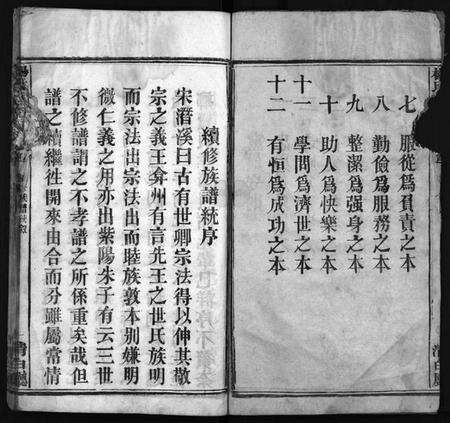 七　服從爲負責之本
八　勤儉爲服務之本
九　整潔爲强身之本
十　助人爲快樂之本
十一　學問爲濟世之本
十二　有恒爲成功之本
續修族譜統序
宋濳溪曰古有世卿宗法得以伸其敬
宗之義王弇州有言先王之世氏族明
而宗法出宗法出而睦族敦本别嫌明
微仁義之用亦出紫陽朱子有云三世
不修譜謂之不孝譜之所係重矣哉但
譜之續繼徃開來由合而分雖屬常情
清白